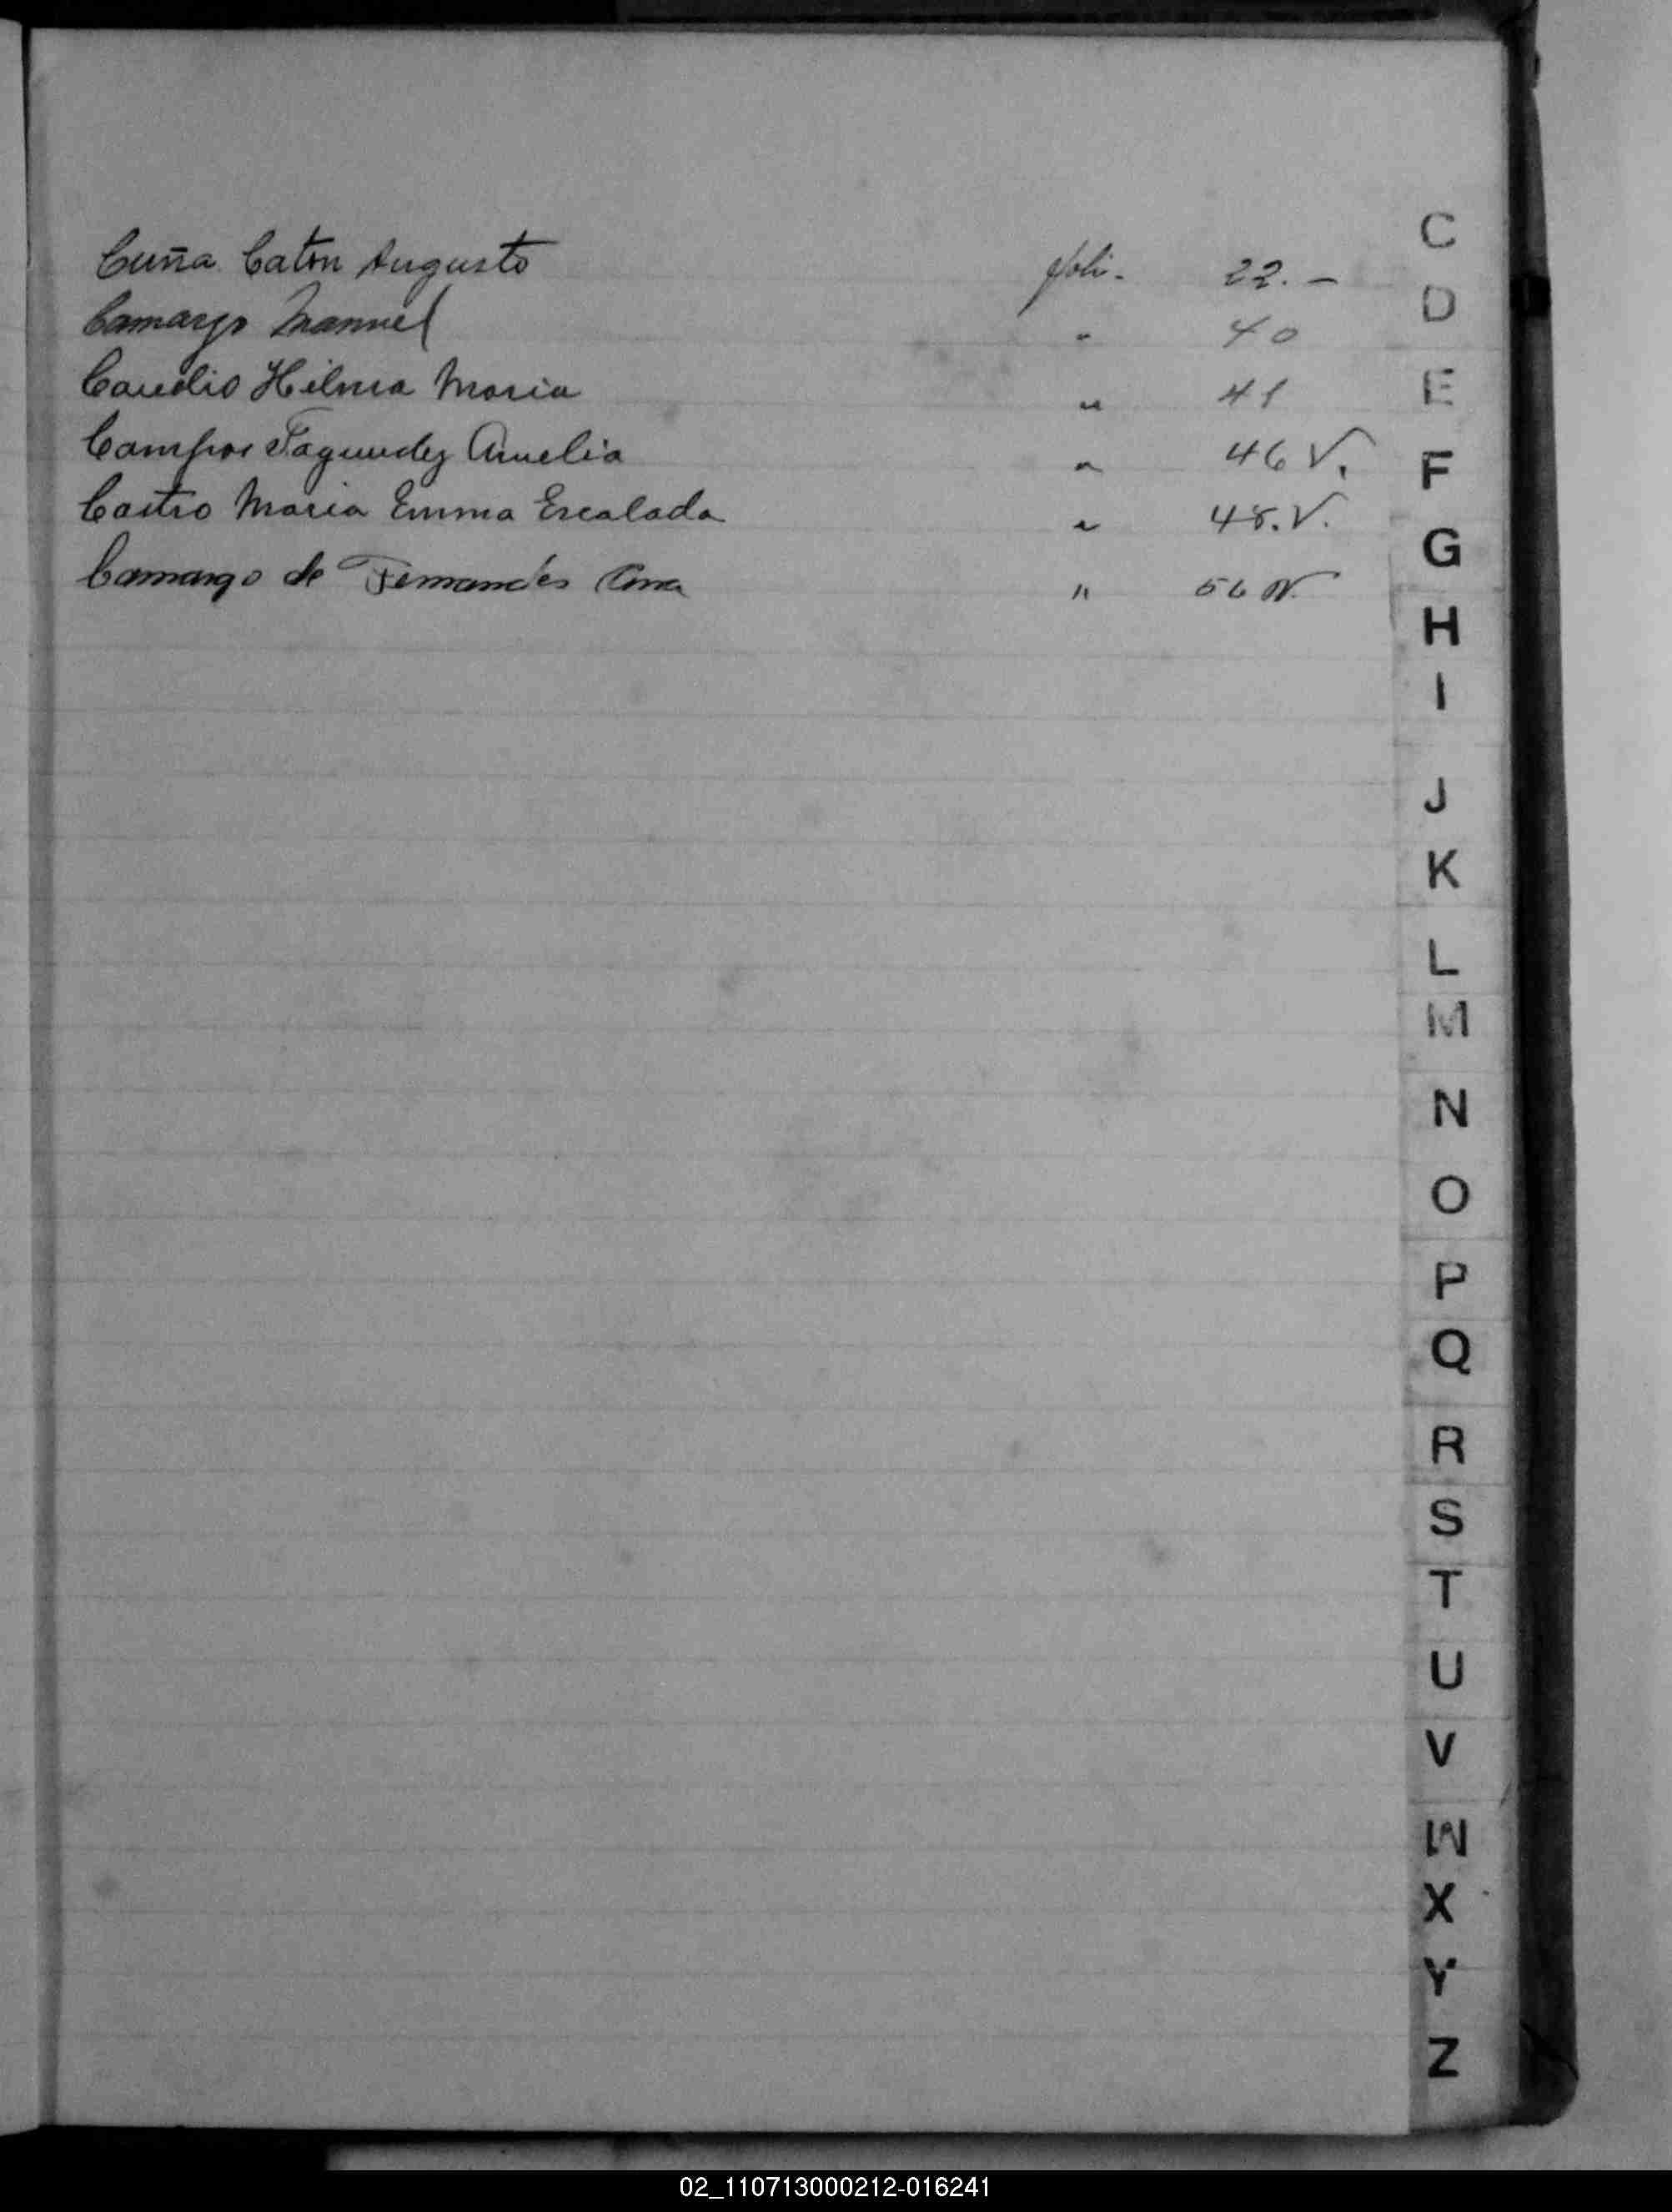 Cuña Caton Augusto folio 22. -
Camargo Manuel " 40
Candio Hilma Maria " 41
Campos Fagundez Amelia " 46 V.
Castro Maria Emma Escalada " 48. V.
Camargo de Fernandes Ana " 56 V.
C
D
E
F
G
H
I
J
K
L
M
N
O
P
Q
R
S
T
U
V
W
X
Y
Z
02_110713000212-016241